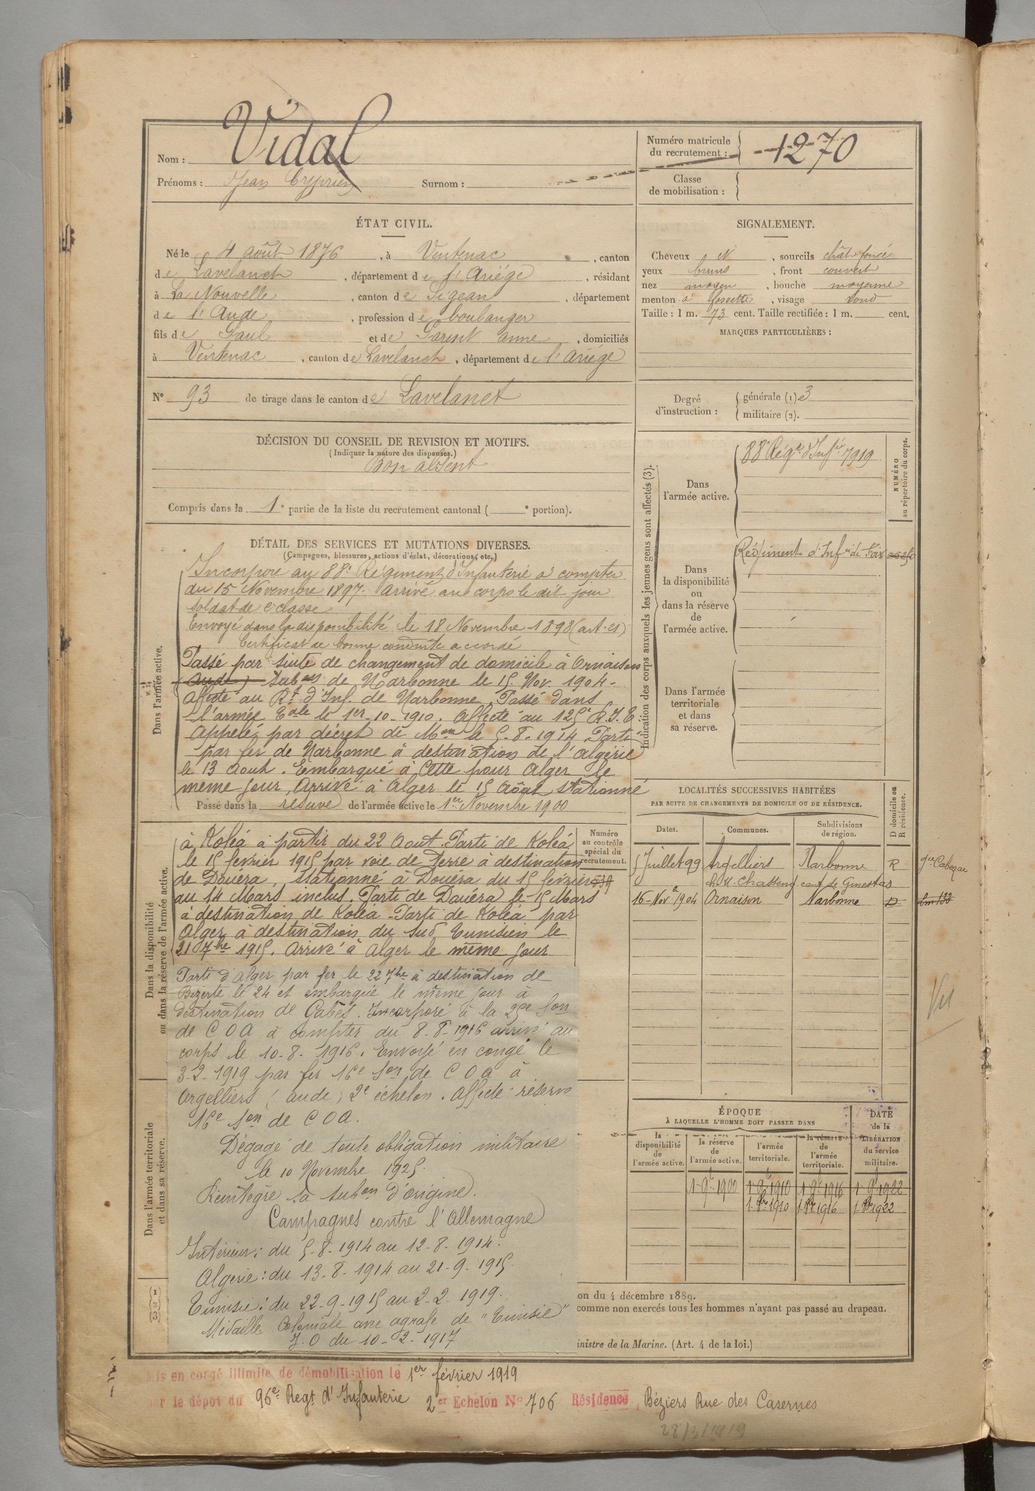 Nom : Vidal
Prénoms : Jean Cyprien Surnom :
Numéro matricule
du recrutement : 1270
Classe
de mobilisation :
ÉTAT CIVIL.
Né le 4 août 1876, à Ventenac, canton
de Lavelanet, département de l'Ariège, résidant
à La Nouvelle, canton de Sigean, département
de l'Aude, profession de boulanger
fils de Paul et de Anne, domiciliés
à Ventenac, canton de Lavelanet, département de l'Ariège
N° 93 de tirage dans le canton de Lavelanet
SIGNALEMENT.
Cheveux N, sourcils chât foncé
yeux bruns, front couvert
nez moyen, bouche moyenne
menton à fossette, visage rond
Taille : 1 m. 73 cent. Taille rectifiée : 1 m. cent.
MARQUES PARTICULIÈRES :
Degré
d'instruction :
générale (1) 3
militaire (2).
DÉCISION DU CONSEIL DE REVISION ET MOTIFS.
(Indiquer la nature des dispenses.)
Bon absent
Compris dans la 1e partie de la liste du recrutement cantonal ( e portion).
DÉTAIL DES SERVICES ET MUTATIONS DIVERSES.
(Campagnes, blessures, actions d'éclat, décorations, etc.)
Dans l'armée active.
Incorporé au 88e Régiment d'Infanterie à compter
du 15 Novembre 1897. arrivé au corps le dit jour
soldat de 2e classe
Envoyé dans la disponibilité le 18 Novembre 1898 (art. 21)
Certificat de bonne conduite accordé
Passé par suite de changement de domicile à Ornaison
(Aude) Subon de Narbonne le 15 Nov. 1904.
Affecté au Rt d'Inf. de Narbonne. Passé dans
l'armée Tale le 1er.10.1910. Affecté au 125e R.T.I.
Appelé par décret de Mon le 5.8.1914 Parti
par fer de Narbonne à destination de l'Algérie
le 13 Aout. Embarqué à Cette pour Alger le
même jour, Arrivé à Alger le 15 Août stationné
Passé dans la réserve de l'armée active le 1er Novembre 1900
Dans la disponibilité
ou dans la réserve de l'armée active.
à Koléa à partir du 22 Aout. Parti de Koléa
le 15 février 1915 par voie de terre à destination
de Douéra, stationné à Douéra du 15 février
au 14 Mars inclus. Parti de Douéra le 15 Mars
à destination de Koléa. Parti de Koléa par
Alger à destination du Sud Tunisien le
21 7bre 1915. Arrivé à Alger le même jour
Parti d'Alger par fer le 22 7bre à destination de
Bizerte le 24 et embarqué le même jour à
destination de Gabès. Incorporé à la
de C O A à compter du 8.8.1916 arrivé au
corps le 10.8.1916. Envoyé en congé le
3-2-1919 par fer 16e Son de C O A à
Argelliers (Aude) 2e échelon. Affecté réserve
16e Son de C O A.
Dans l'armée territoriale
et dans sa réserve.
Dégagé de toute obligation militaire
le 10 Novembre 1925.
Réintègre la subon d'origine.
Campagnes contre l'Allemagne
Intérieur : du 5.8.1914 au 12.8.1914.
Algérie : du 13.8.1914 au 21.9.1915
Tunisie : du 22.9.1915 au 2.2.1919.
Médaille Coloniale avec agrafe de "Tunisie"
J.O du 10-2-1917
Numéro
au contrôle
spécial du
recrutement.
Indication des corps auxquels les jeunes gens sont affectés (3).
NUMÉRO
au répertoire du corps.
Dans
l'armée active.
88e Régt d'Infie 7919
Dans
la disponibilité
ou
dans la réserve
de
l'armée active.
Régiment d'Infie de Foix
Dans l'armée
territoriale
et dans
sa réserve.
LOCALITÉS SUCCESSIVES HABITÉES
PAR SUITE DE CHANGEMENTS DE DOMICILE OU DE RÉSIDENCE.
Dates. Communes. Subdivisions
de région.
D domicile ou
R résidence.
5 Juillet 99 Argelliers Narbonne R
cant de Ginestas
16 Nov 1904 Ornaison Narbonne D
Vu
ÉPOQUE
À LAQUELLE L'HOMME DOIT PASSER DANS
la
disponibilité
de
l'armée active.
la réserve
de
l'armée active.
l'armée
territoriale.
la réserve
de
l'armée
territoriale.
DATE
de la
LIBÉRATION
du service
militaire.
1 9bre 1900 1 9bre 1910 1 9bre 1916 1 9bre 1922
1 8bre 1910 1 8bre 1916 1 8bre 1922
on du 4 décembre 1889.
comme non exercés tous les hommes n'ayant pas passé au drapeau.
inistre de la Marine. (Art. 4 de la loi.)
is en congé illimité de démobilisation le 1er février 1919
ar le dépôt du 96e Regt d'Infanterie 2er Echelon N° 706 Résidence, Béziers Rue des Casernes
28/3/1919